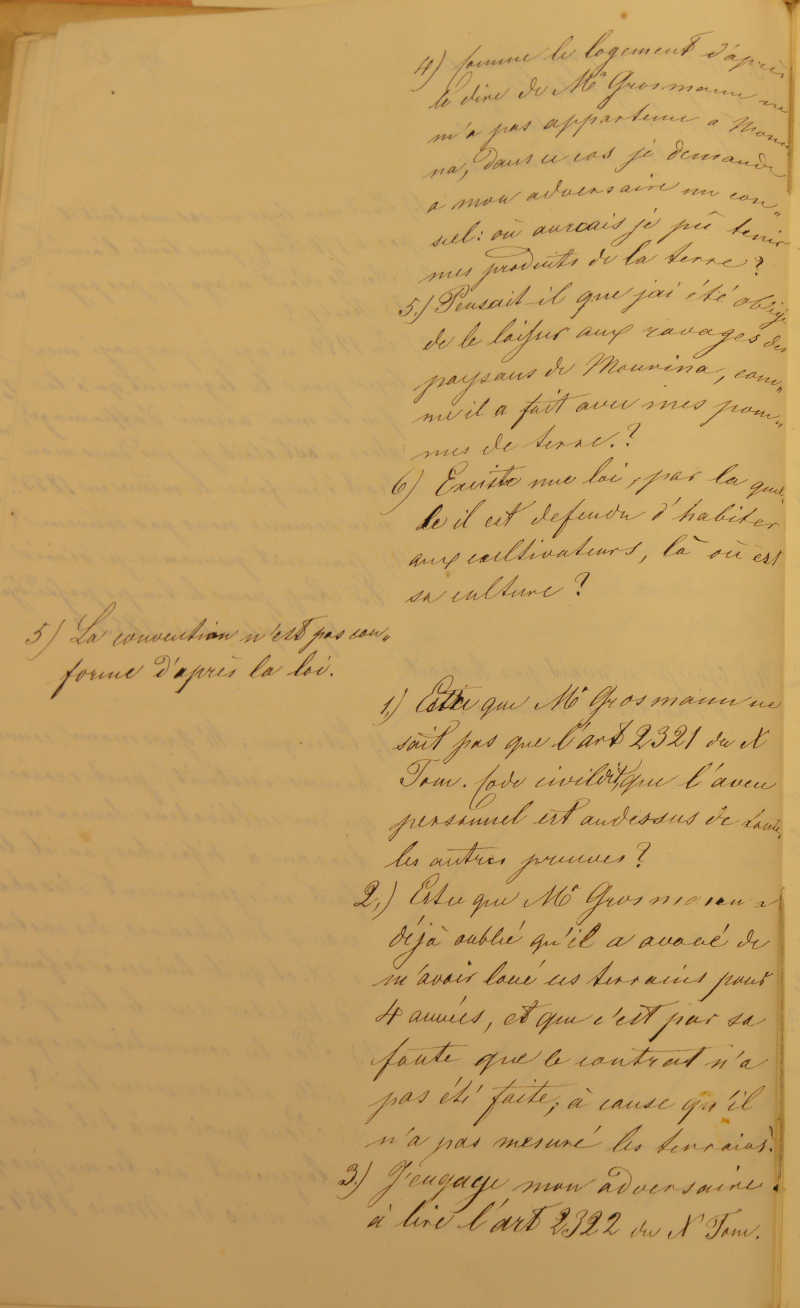 4) Comme le logement d'après
le dire de Mr Grosmann ne
m'a pas appartenu a Mouri„
na, dans ce cas je demande
a mon adversaire un con„
seil: où aurcais je pû tenir
mes produits de la terre?
5.) Pensait-il que jai été obligé
de le laisser aux ravages des
paysans de Mourina, com„
me il a fait avec mes pom„
mes de terre.?
6) Existe une loi, par la quel„
le il est defendu d'habiter
aux cultivateurs, là où est
sa culture?
5) La convention n'est pas con„
forme d'après la loi.
1.) Estce que Mr Grosmann ne
sait pas que l'art 2321 du X
Tom. Code civil dit, que l'aveu
personnel est audessus de toutes
les autres preuves?
2,) Estce que Mr Grosmann a
déjà oublié qu'il a avoué de
m'avoir loué ces terrains pour
4 années, et que c'est par sa
faute que le contrat n'a
pas été faite, à cause qu'il
n'a pas mesuré les terrains?
3.) J'engage mon adversaire
à lire l'art 2322 du X Tom.